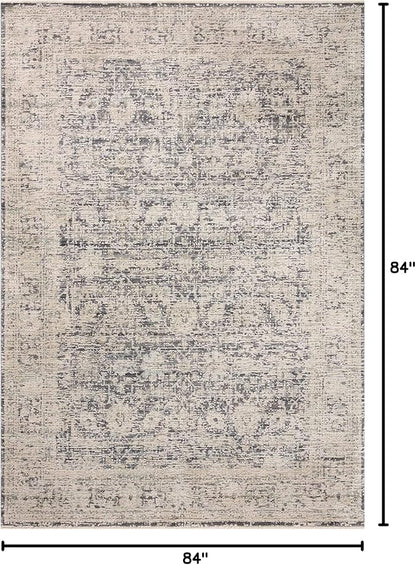 84"
84"